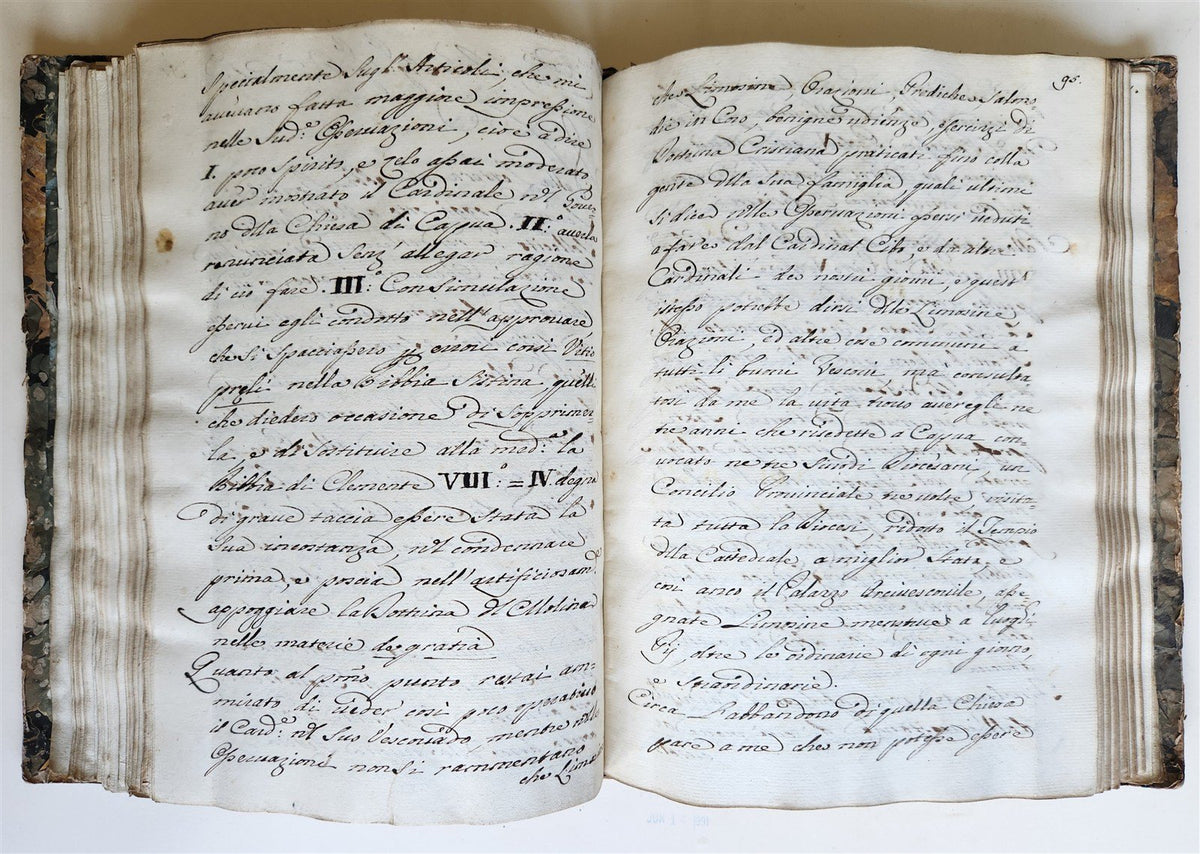 Specialmente sugl' Articoli, che mi
avevano fatta maggiore impressione
nelle Sud.e Osservazioni, cioè a dire
I. poco Spirito, e zelo assai moderato
aver mostrato il Cardinale nel Gover=
no della Chiesa di Capua. II.o averla
renunciata senz' allegar ragione
di ciò fare. III.o: Con Simulazione
essersi egli condotto nell' approvare
che si spacciassero p errori corsi Vitio
preli nella Bibbia Sistina quelli
che diedero occasione di Sopprimer
la, e di Sostituire alla med.a la
Bibbia di Clemente VIII.o: = IV. degna
di grave taccia essere stata la
sua incostanza, nel condennare
prima, e poscia nell' artificiosam.e
appoggiare la Dottrina del Molina
nelle materie de gratia
Quanto al pmo punto restai am=
mirato di veder così poco operativo
il Card.e nel Suo Vescovado, mentre nelle
Osservazioni non si rammentano
che Limo
95.
che Limosine Orazioni, Prediche, Salmo
die in Coro, benigne udienze, esercizi di
Dottrina Cristiana praticati fino colla
gente della Sua famiglia, quali ultimi
si dice nelle Osservazioni essersi veduti
a fare dal Cardinal Cibo, e da altri
Cardinali de nostri giorni, e quest'
istesso potrebbe dirsi delle Limosine
Orazioni, ed altre cose communi a
tutti li buoni Vescovi ma consulta
tasi da me la vita trovo aver egli ne
tre anni che risedette a Capua con=
vocato ne tre Sinodi Diocesani, un
Concilio Provinciale tre volte visita
ta tutta la Diocesi, ridotto il Tempio
della Cattedrale, a miglior Stato, e
così anco il Palazzo Arcivescovile, asse
gnate Limosine menstrue a Luoghi
Pij, oltre le ordinarie di ogni giorno,
e Straordinarie.
Circa l'abbandono di quella Chiesa
pare a me che non potesse essere